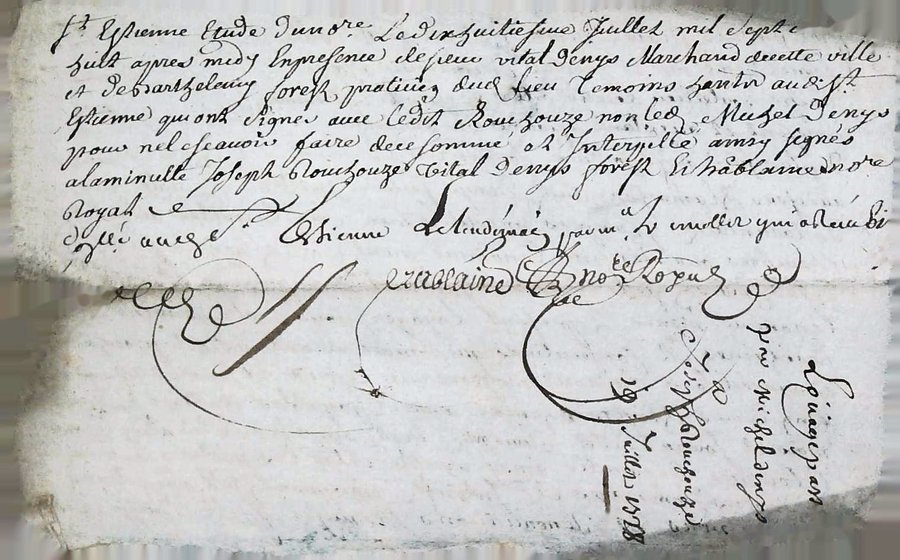 St Estienne Etude du nore Le dix huitiesme Juillet mil sept c
huit apres midy En presence de sieur vital Denys Marchand de cette ville
et de Barthelemy forest praticien dud lieu temoins hentz aud St
Estienne qui ont signe avec ledit Rouchouze non led Michel Denys
pour ne le scavoir faire de ce sommé et Interpellé ainsy signés
a la minutte Joseph Rouchouze vital Denys forest Et hâblaine nore
Royal
Estienne
hâblaine nore Royal
Loüage pass
par Michel denys
A
Joseph Rouchouze
Juillet 1728